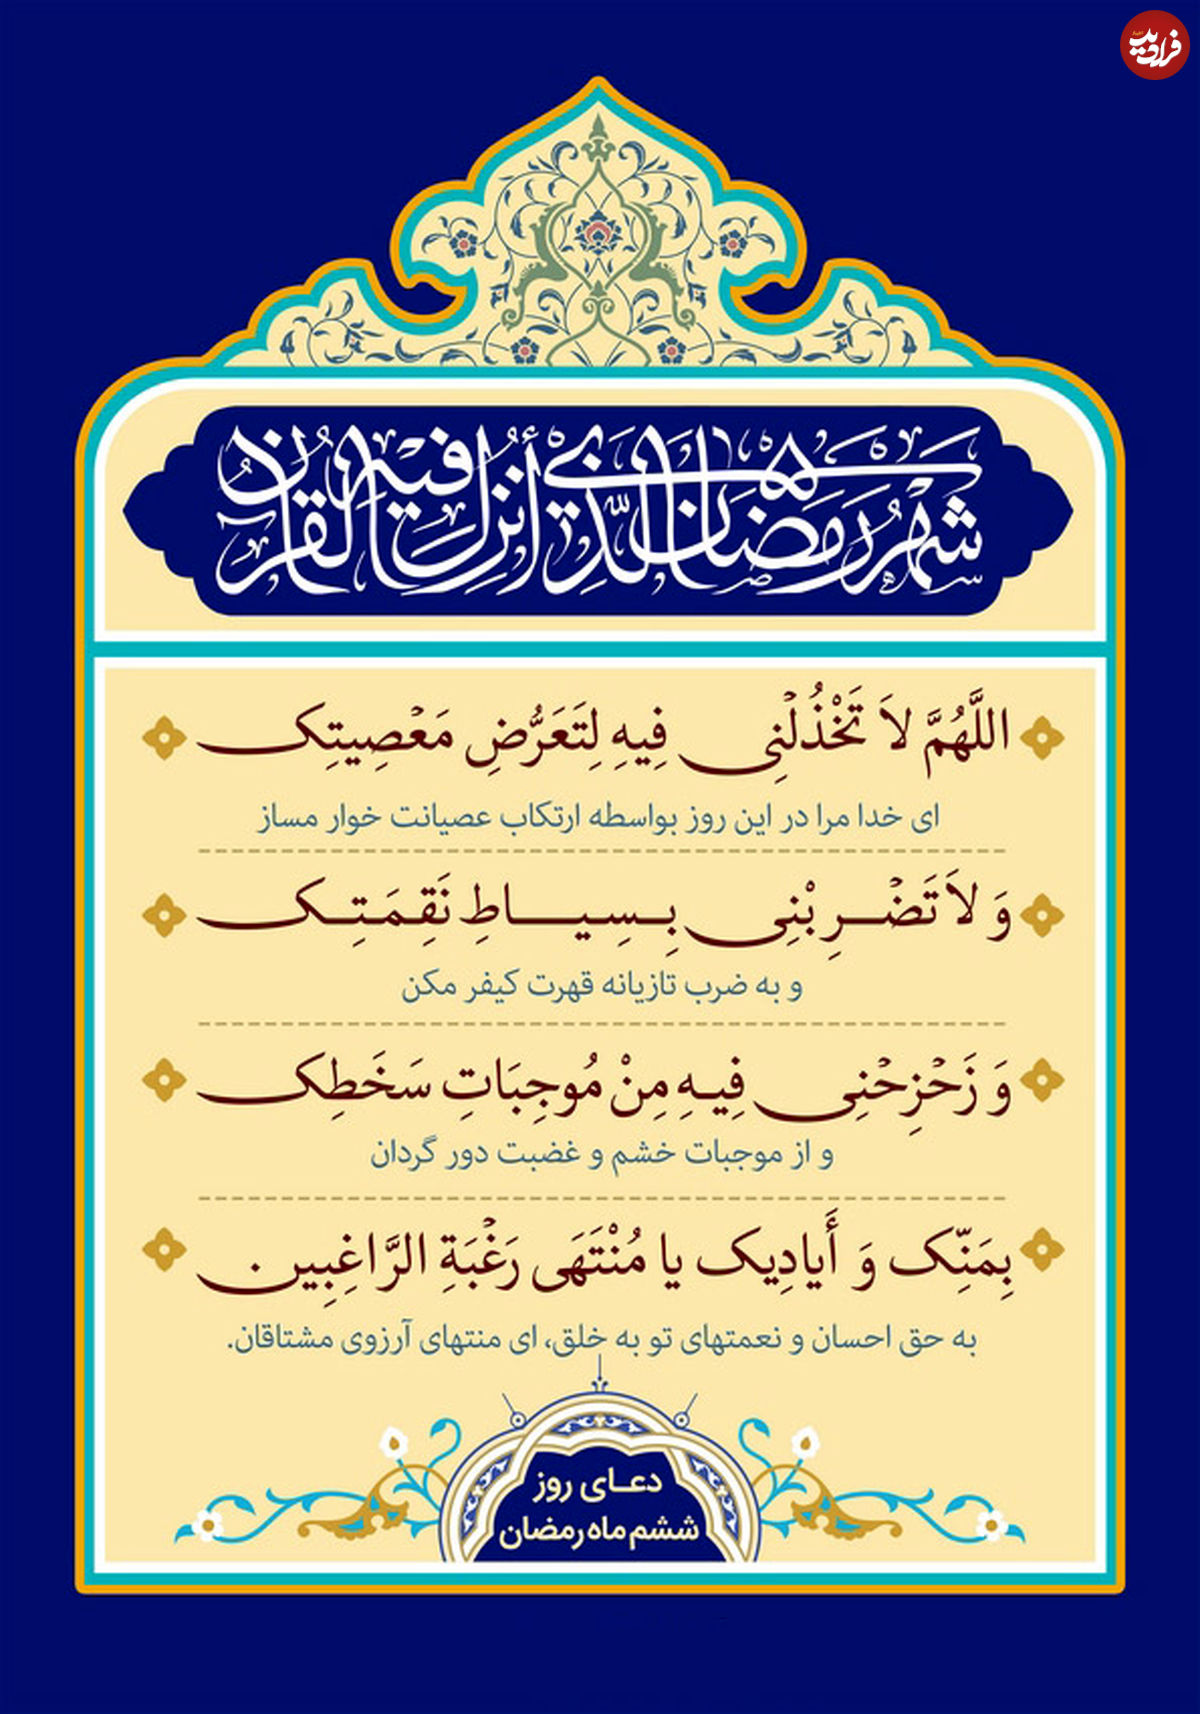 فرادید
شَهْرُ رَمَضَانَ الَّذِي أُنْزِلَ فِيهِ الْقُرْآنُ
اللَّهُمَّ لاَ تَخْذُلْنِی فِيهِ لِتَعَرُّضِ مَعْصِيتِک
ای خدا مرا در این روز بواسطه ارتکاب عصیانت خوار مساز
وَ لاَ تَضْرِبْنِی بِسِيَاطِ نَقِمَتِک
و به ضرب تازیانه قهرت کیفر مکن
وَ زَحْزِحْنِی فِيهِ مِنْ مُوجِبَاتِ سَخَطِک
و از موجبات خشم و غضبت دور گردان
بِمَنِّک وَ أَيادِيک يا مُنْتَهَى رَغْبَةِ الرَّاغِبِين.
به حق احسان و نعمتهای تو به خلق، ای منتهای آرزوی مشتاقان.
دعای روز
ششم ماه رمضان